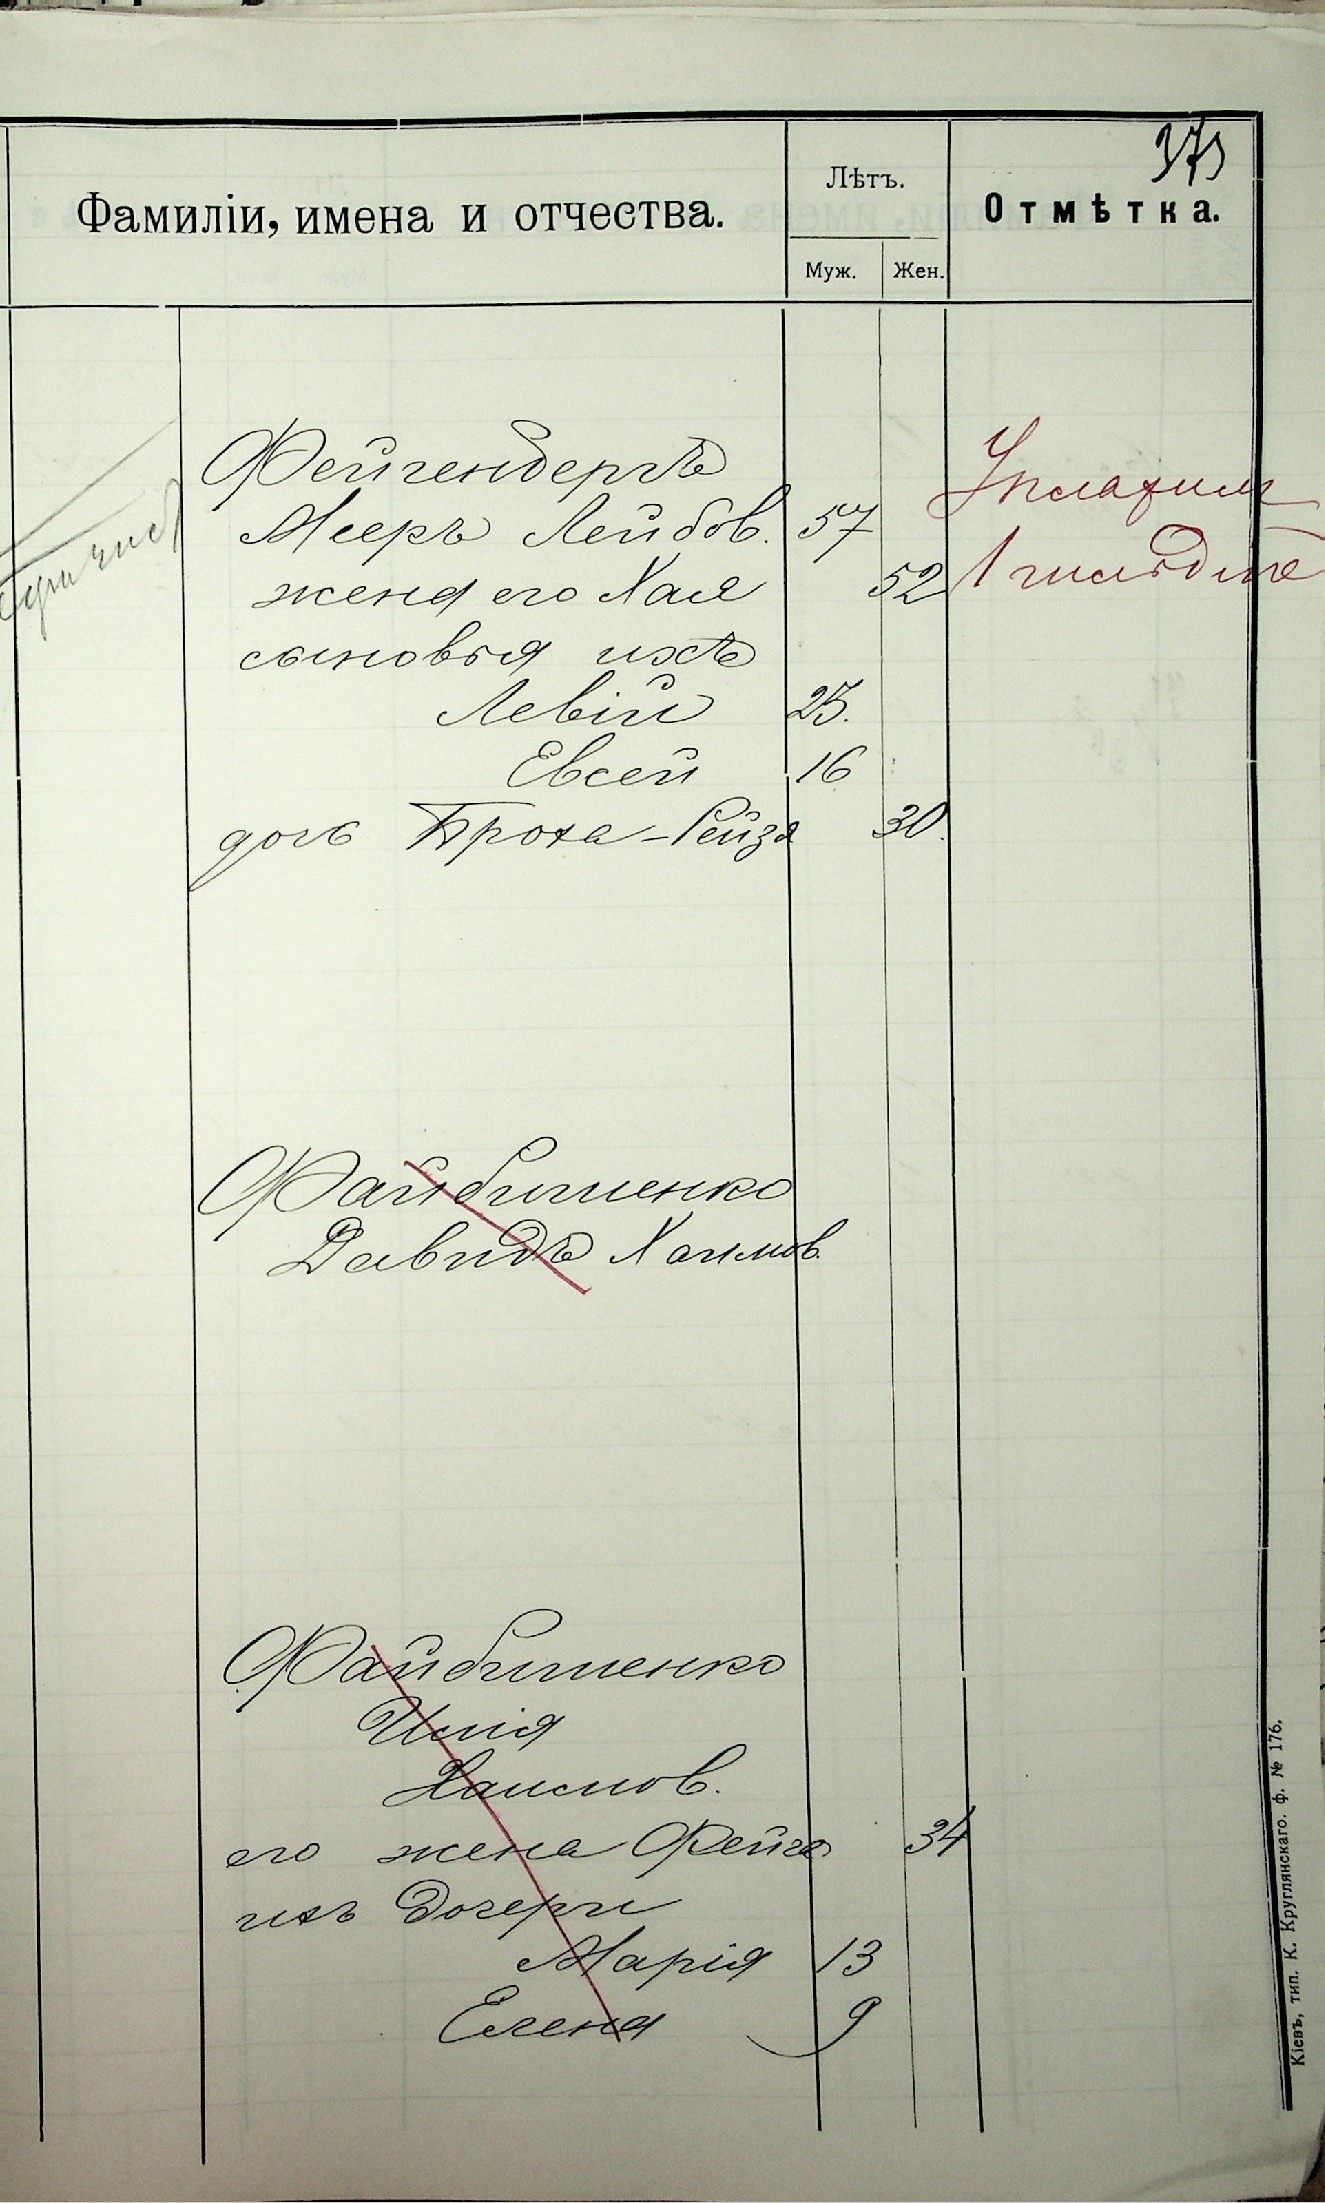 373
Фамиліи, имена и отчества.
Лѣтъ.
Муж.
Жен.
Отмѣтка.
Фейгенбергъ
Мееръ Лейбов. 57
жена его Хая 52
сыновья ихъ
Левій 25.
Евсей 16
дочь Броха-Рейза 30.
1 гильдіе
Файбишенко
Давидъ Хаимов.
Файбишенко
Илія
Хаимов.
его жена Фейга 34
ихъ дочери
Марія 13
Елена 9
Кіевъ, тип. К. Круглянскаго. ф. № 176.